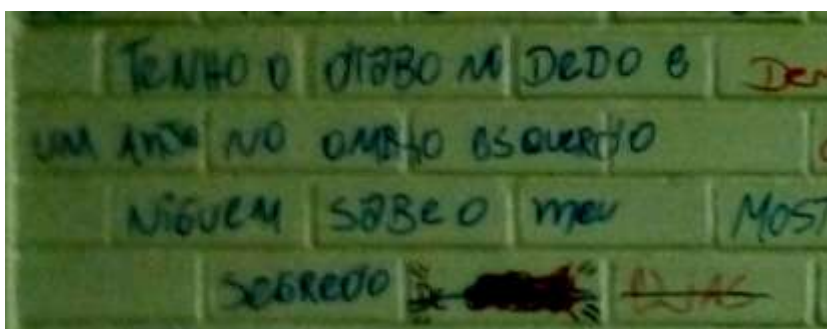 TENHO O DIABO NO DEDO E
UM ANJO NO OMBRO ESQUERDO
NIGUEM SABE O meu MOST
SEGREDO